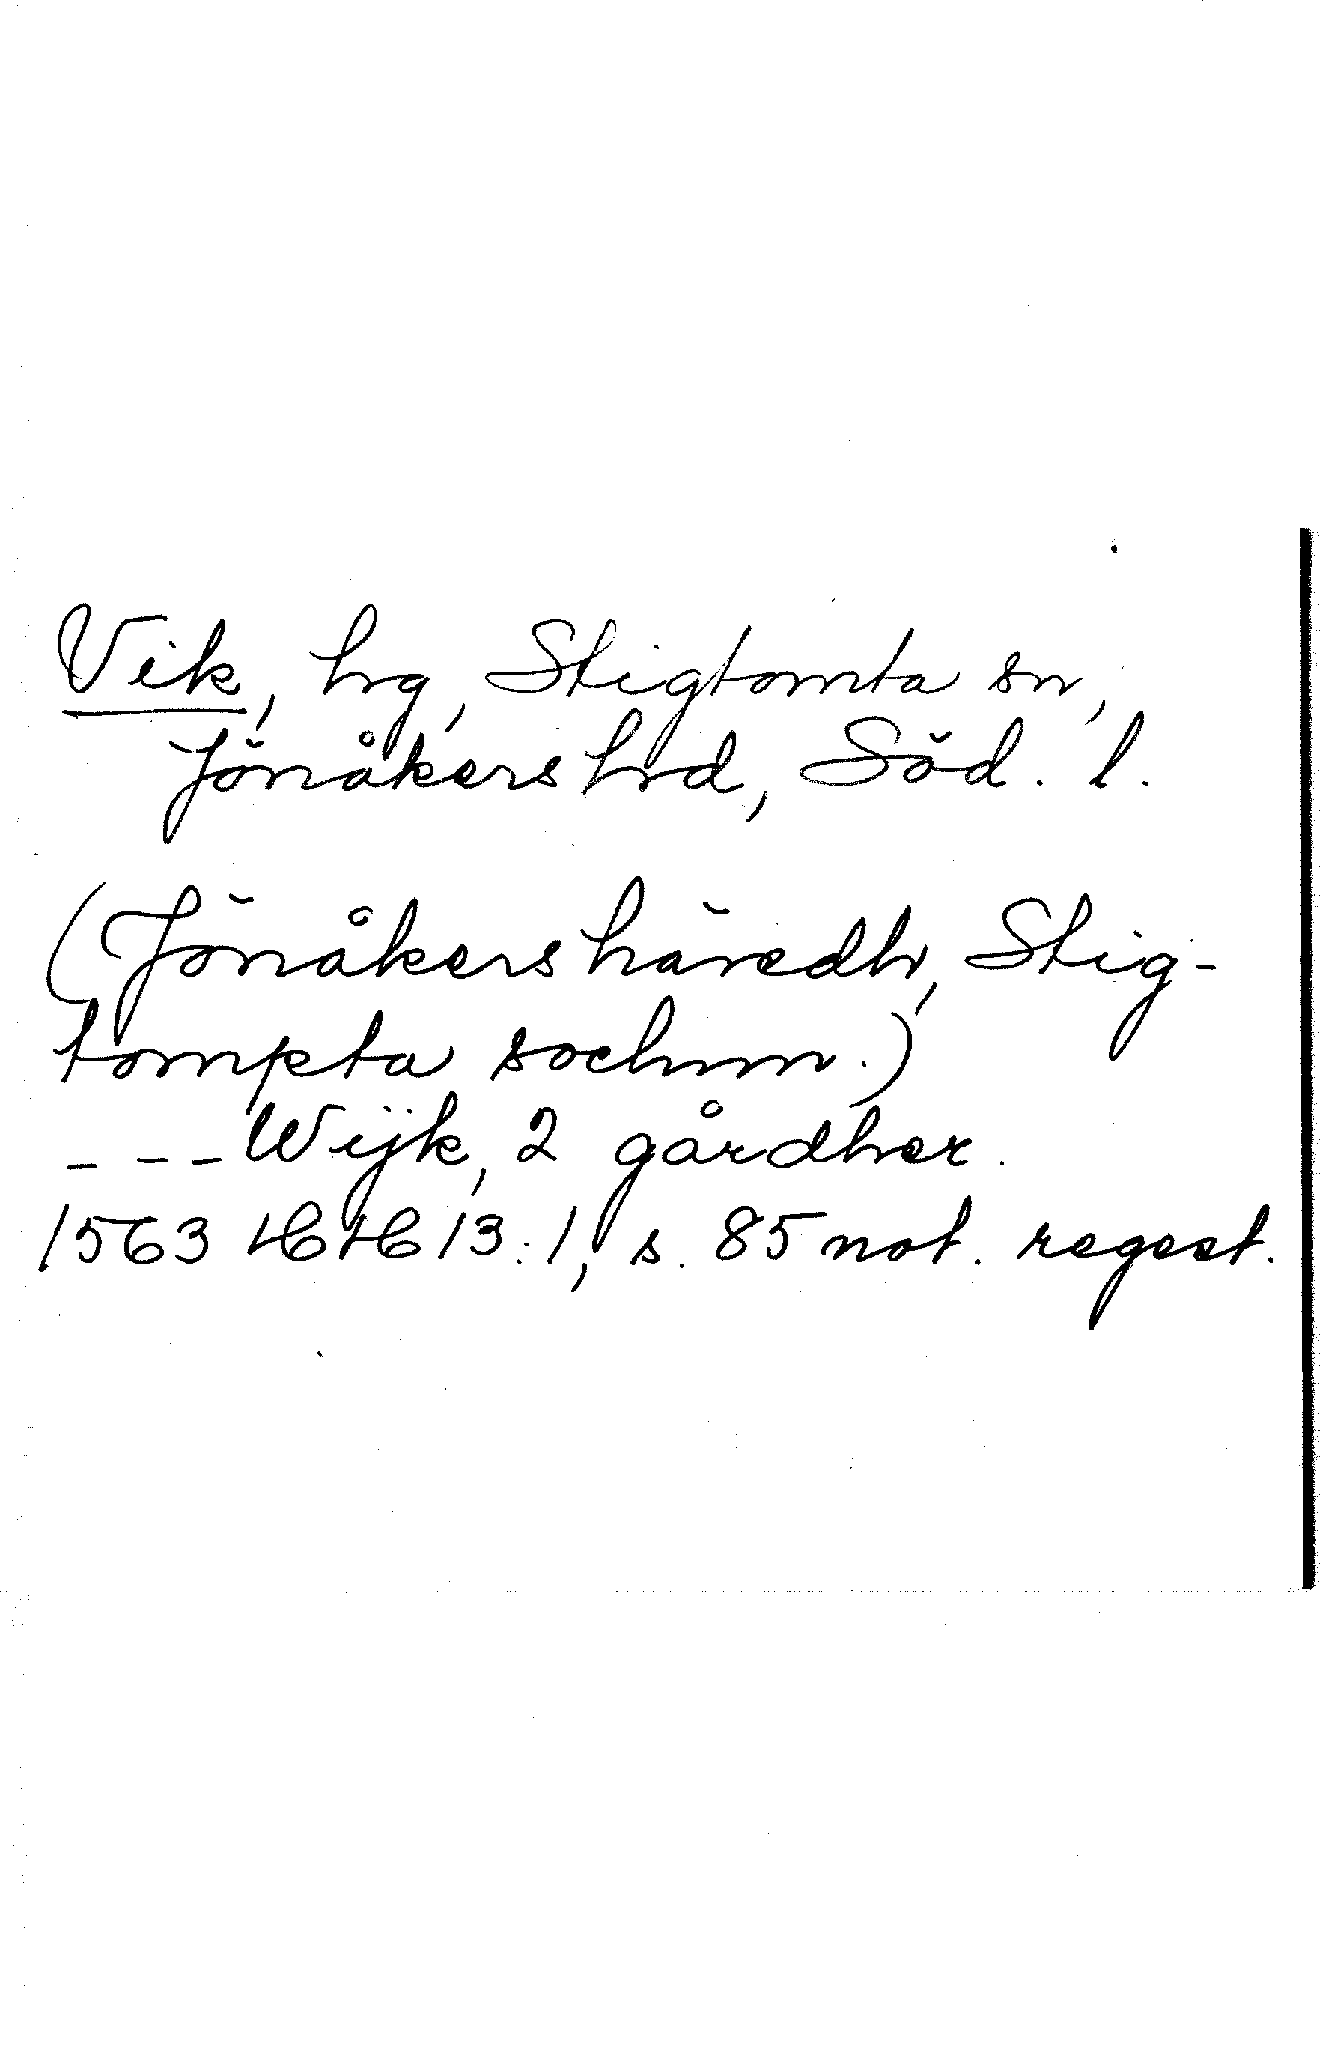 Vik, hg, Stigtomta sn,
Jönåkers hd, Söd. l.
(Jönåkers häredh, Stig-
tompta sochnn.)
---Wijk, 2 gårdher.
1563 HH 13:1, s. 85 not. regest.